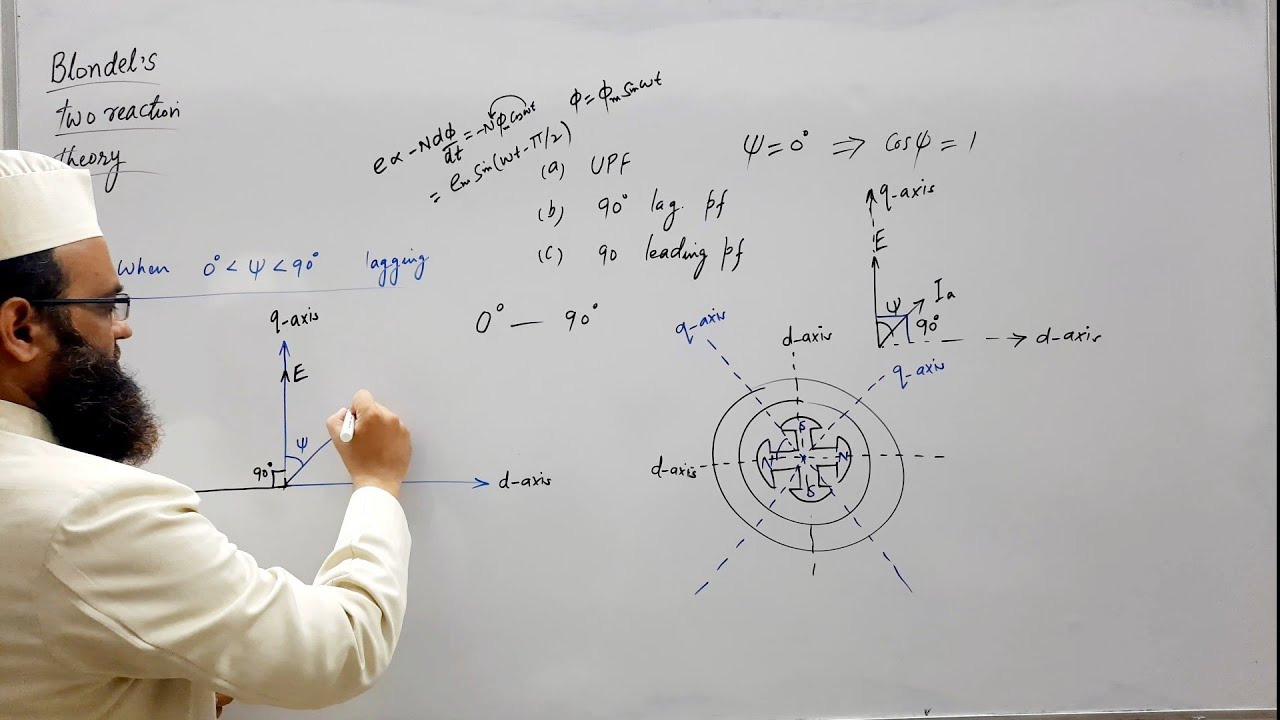 Blondel's
two reaction
theory
e ∝ -N dφ/dt = -Nφm cosωt
φ = φm sinωt
= em sin(ωt - π/2)
(a) UPF
(b) 90° lag. pf
(c) 90 leading pf
ψ = 0° ⇒ cosψ = 1
When 0° < ψ < 90° lagging
0° — 90°
q-axis
E
ψ
90°
d-axis
q-axis
E
ψ
Ia
90°
d-axis
q-axis
d-axis
q-axis
d-axis
S
N
N
S